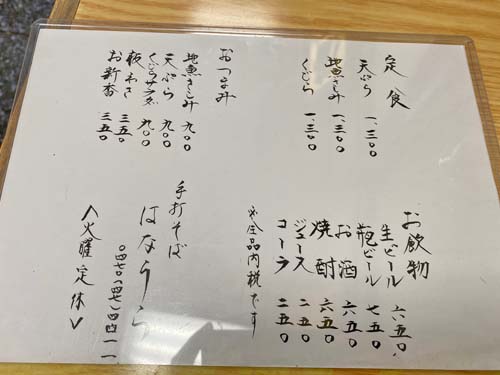 定食
天ぷら 一、三〇〇
地魚さしみ 一、三〇〇
くじら 一、三〇〇
おつまみ
地魚さしみ 九〇〇
天ぷら 九〇〇
くじらサラダ 九〇〇
板わさ 三五〇
お新香 三五〇
お飲物
生ビール 六五〇
瓶ビール 七五〇
お酒 六五〇
焼酎 六五〇
ジュース 二五〇
コーラ 二五〇
※全品内税です
手打そば
はなうら
〇四七〇(四七)四四一一
〈火曜定休〉